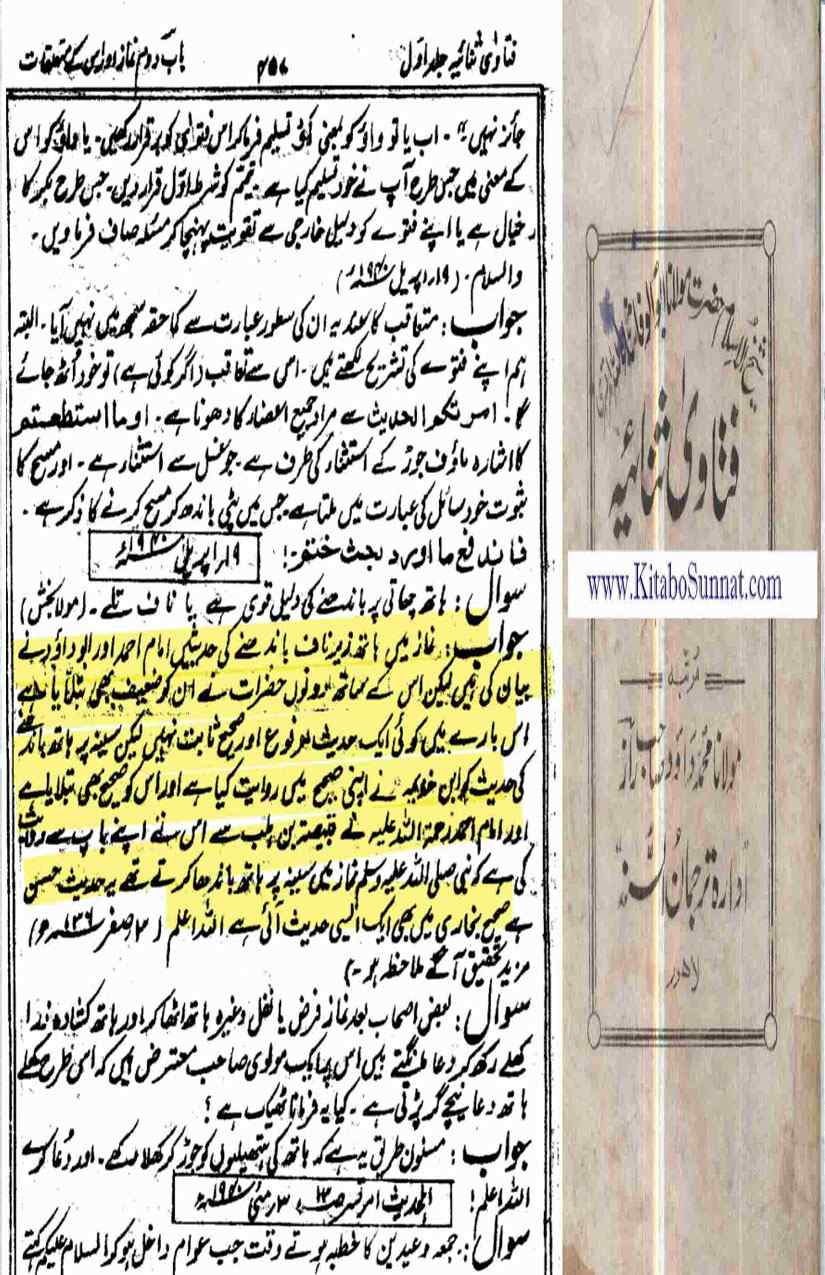 فتاویٰ ثنائیہ جلد اوّل
۴۵۷
باب دوم نماز اور اس کے متعلقات
جائز نہیں"۔ اب یا تو واؤ کو بمعنی تسلیم فرما کر اس فتویٰ کو برقرار رکھیں۔ یا واؤ کو اس
کے معنی میں جس طرح آپ نے خود تسلیم کیا ہے۔ تیمم کو شرط اوّل قرار دیں۔ جس طرح مجھ کا
خیال ہے یا اپنے فتوے کو دلیل خارجی سے تقویت پہنچا کر مسئلہ صاف فرماویں۔
والسلام۔ (۱۹ اپریل ۱۹۴۰ء)
جواب: متعاقب کا عندیہ ان کی سطور عبارت سے کما حقہ سمجھ میں نہیں آیا۔ البتہ
ہم اپنے فتوے کی تشریح لکھتے ہیں۔ اس سے تعاقب (اگر کوئی ہے) تو خود اُٹھ جائے
گا۔ امرتکم الحدیث سے مراد جمیع اعضاء کا دھونا ہے۔ اوما استطعتم
کا اشارہ ماؤف جوڑ کے استثناء کی طرف ہے۔ جو غسل سے استثناء ہے۔ اور مسح کا
ثبوت خود سائل کی عبارت میں ملتا ہے۔ جس میں پٹی باندھ کر مسح کرنے کا ذکر ہے۔
فاندفع ما اورد بحث ختم!
۱۹ اپریل ۱۹۴۰ء
سوال: ہاتھ چھاتی پر باندھنے کی دلیل قوی ہے یا ناف تلے۔ (مولا بخش)
جواب: نماز میں ہاتھ زیر ناف باندھنے کی حدیثیں امام احمد اور ابو داؤد نے
بیان کی ہیں لیکن اس کے ساتھ دونوں حضرات نے ان کو ضعیف بھی بتلایا ہے
اس بارے میں کوئی ایک حدیث مرفوع اور صحیح ثابت نہیں لیکن سینہ پر ہاتھ باندھنے
کی حدیث کو ابن خزیمہ نے اپنی صحیح میں روایت کیا ہے اور اس کو صحیح بھی بتلایا ہے
اور امام احمد رحمۃ اللہ علیہ نے قبیصہ بن ہلب سے اس نے اپنے باپ سے روایت
کی ہے کہ نبی صلی اللہ علیہ وسلم نماز میں سینہ پر ہاتھ باندھا کرتے تھے یہ حدیث حسن
ہے صحیح بخاری میں بھی ایک ایسی حدیث آئی ہے اللہ اعلم
مزید تحقیق آگے ملاحظہ ہو۔)
سوال: بعض اصحاب بعد نماز فرض یا نفل وغیرہ ہاتھ اٹھا کر اور ہاتھ کشادہ ذرا
کھلے رکھ کر دعا مانگتے ہیں اس پر ایک مولوی صاحب معترض ہیں کہ اس طرح کھلے
ہاتھ دعا نیچے گر پڑتی ہے۔ کیا یہ فرمانا ٹھیک ہے؟
جواب: مسنون طریق یہ ہے کہ ہاتھ کی ہتھیلیوں کو جوڑ کر کھلا رکھے۔ اور دُعا کرے
اللہ اعلم!
اہلحدیث امرتسر ۳ مئی ۱۹۴۰ء
سوال: جمعہ و عیدین کا خطبہ ہوتے وقت جب عوام داخل ہو کر السلام علیکم کہتے
شیخ الاسلام حضرت مولانا ابوالوفا ثناء اللہ امرتسری
فتاویٰ ثنائیہ
www.KitaboSunnat.com
مرتبہ
مولانا محمد داؤد صاحب راز
ادارہ ترجمان السنہ
لاہور